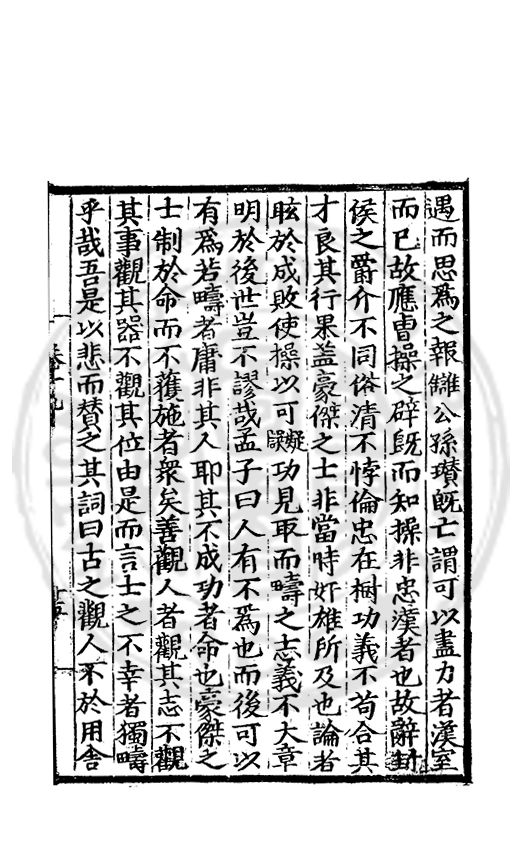 遇而思爲之報讎公孫瓚旣亡謂可以盡力者漢室
而已故應曹操之辟旣而知操非忠漢者也故辭封
侯之爵介不同俗清不悖倫忠在樹功義不苟合其
才良其行果盖豪傑之士非當時奸雄所及也論者
眩於成敗使操以可疑誤功見取而疇之志義不大章
明於後世豈不謬哉孟子曰人有不爲也而後可以
有爲若疇者庸非其人耶其不成功者命也豪傑之
士制於命而不獲施者衆矣善觀人者觀其志不觀
其事觀其器不觀其位由是而言士之不幸者獨疇
乎哉吾是以悲而賛之其詞曰古之觀人不於用舎
卷十九